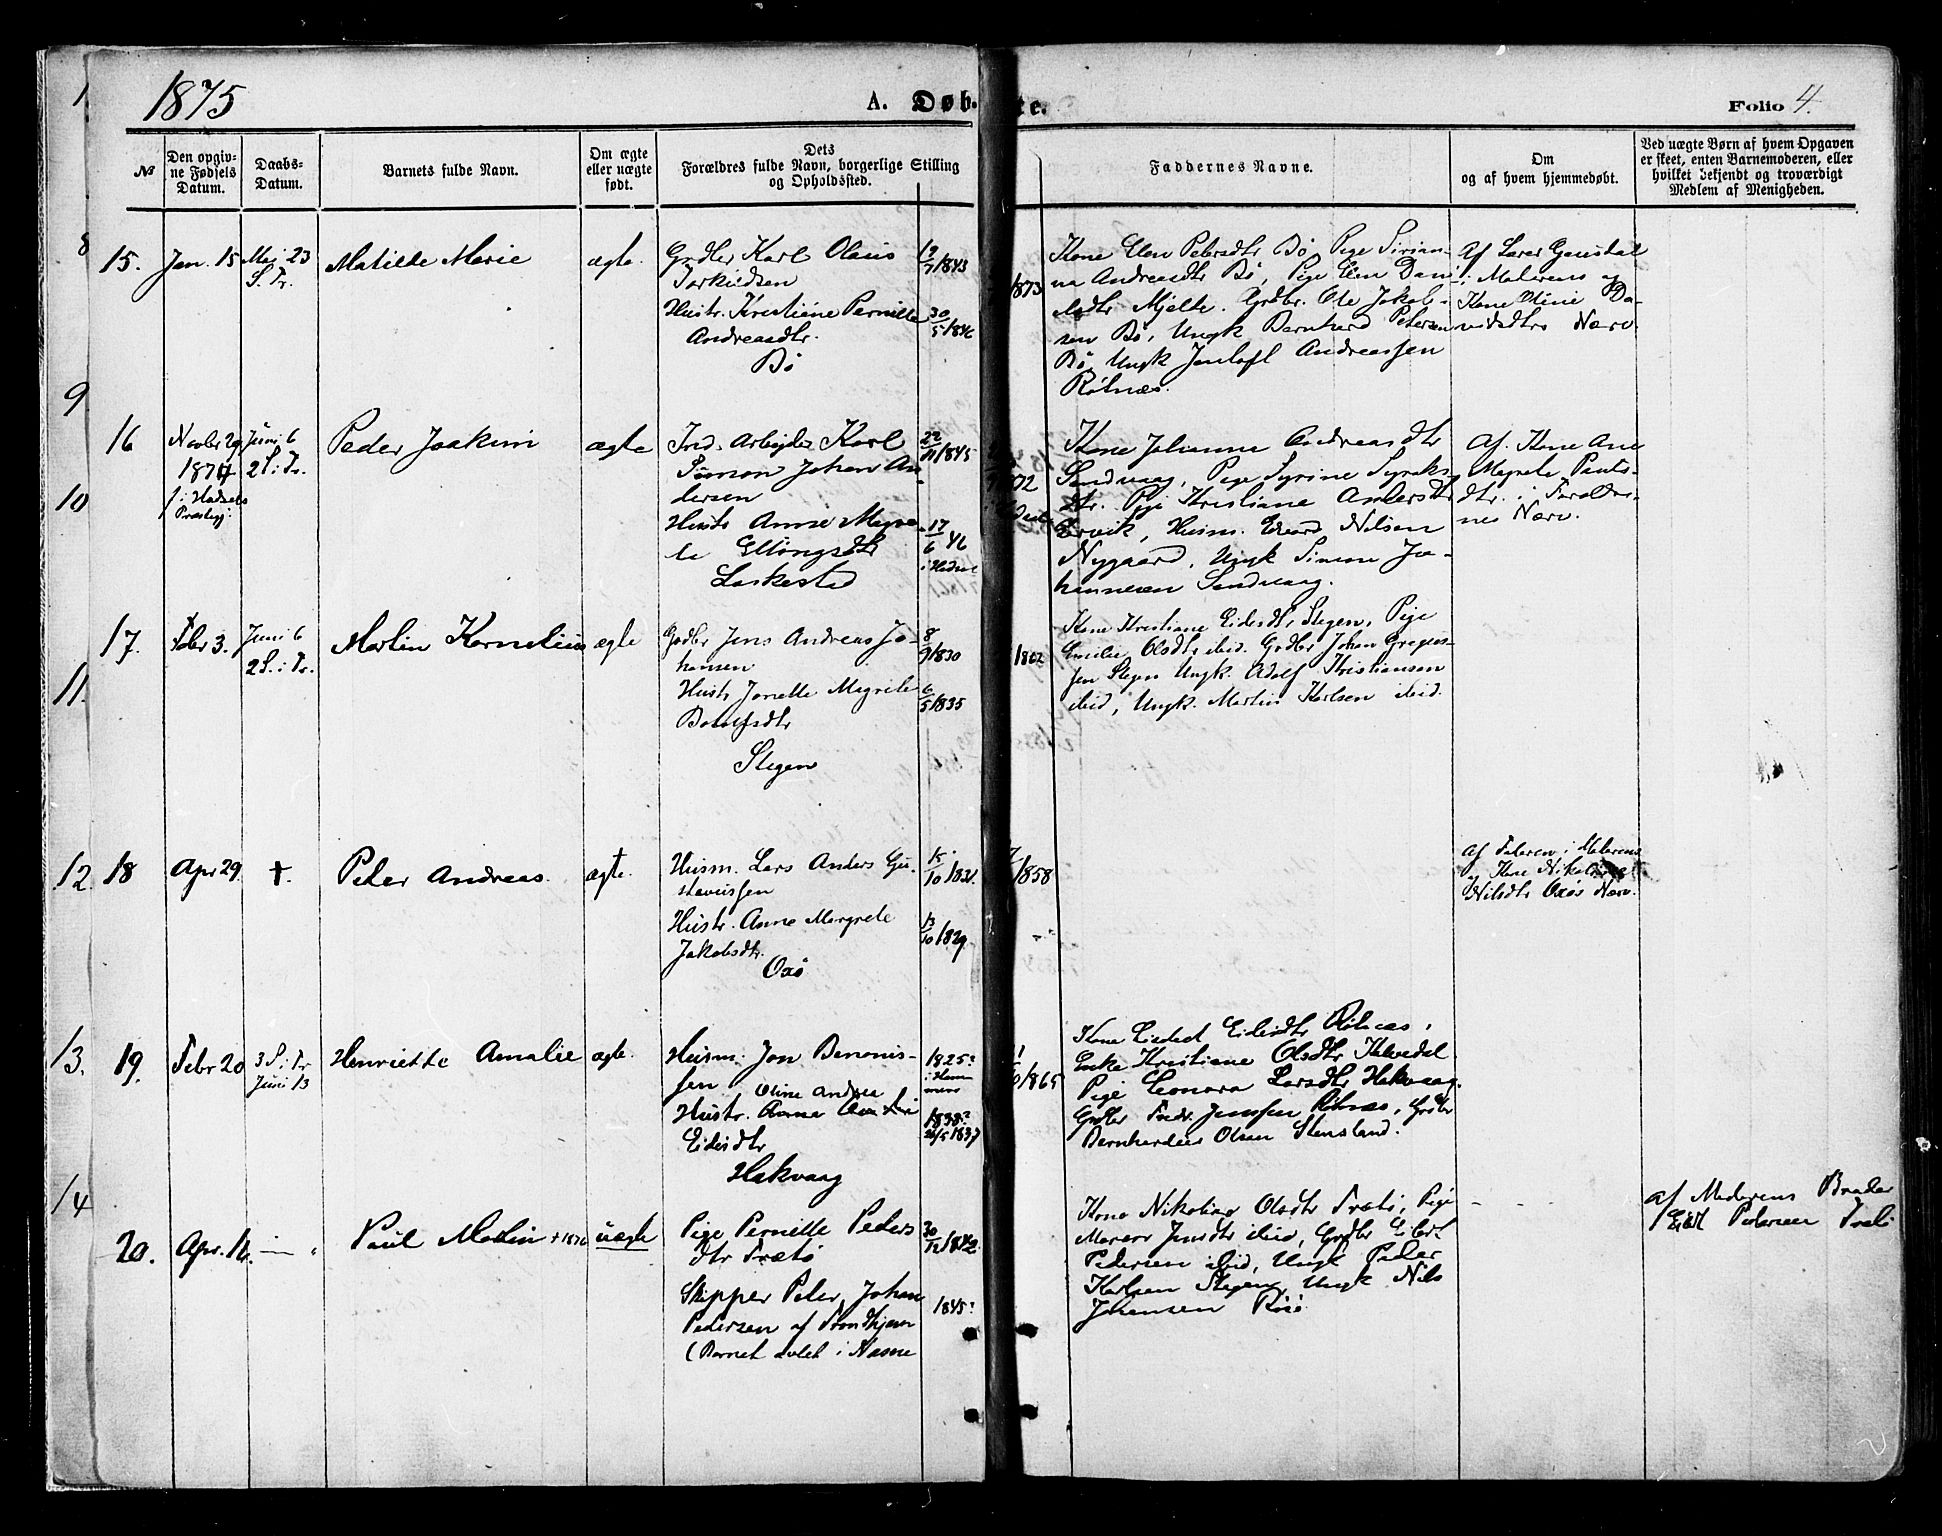 1875
A. Døb-te.
Folio 4.
№
Den opgivne Fødsels Datum.
Daabs-Datum.
Barnets fulde Navn.
Om ægte eller uægte født.
Dets Forældres fulde Navn, borgerlige Stilling og Opholdssted.
Faddernes Navne.
Om og af hvem hjemmedøbt.
Ved uægte Børn af hvem Opgaven er skeet, enten Barnemoderen, eller hvilket bekjendt og troværdigt Medlem af Menigheden.
8
9
10
11.
12.
13.
14
15.
Jan. 15
Mai 23
S. Tr.
Matilde Marie
ægte.
Grdbr Karl Olaus
Hustr. Kristine Pernille
Andreasdtr.
Bø
12/7/1843
30/5/1846
1873
Kone Elen Petersdtr, Bø, Pige Sirian-
na Andreasdtr Bø, Pige Elen Dani-
elsdtr Mjelle. Grdbr. Ole Jakob-
sen Bø, Ungk Bernhard Petersen
Bø, Ungk Jentoft Andreassen
Rötnæs.
Af Lærer Gausdal
i Moderens og
Kone Oline Da-
vidsdtrs Nærv.
16
Novbr 29
1874
i Hadsels
Præstegj:
Juni 6
2 S. i Tr.
Peder Joakim
ægte
Ind. Arbejder Karl
Simon Johan An-
dersen
Hustr Anne Magre-
te Ellingsdtr
Laskestad
22/11/1845
17/6 46
i Hadsel
1872
Kone Johanna Andreasdtr
Sandvaag, Pige Syrine Syraks-
dtr. Pige Kristiane Andersdtr
Husm. Edvard Nilsen
Nygaard, Ungk Simon Jo-
hannesen Sandvaag.
Af Kone Ane
Magrete Pauls-
dtr. i Forældre-
nes Nærv.
17.
Febr 3.
Juni 6
2 S. i Tr.
Martin Kornelius
ægte
Grdbr Jens Andreas Jo-
hansen
Hustr Jonette Megrete
Stegen
8/9/1830
6/5/1835
1862
Kone Kristiane Eidesdtr, Stegen, Pige
Emilie Olsdtr ibid. Grdbr Johan Greger-
sen Stegen Ungk. Adolf Kristiansen
ibid, Ungk. Martin Karlsen ibid.
18
Apr 29.
†.
Peter Andreas.
ægte.
Husm. Lars Anders Gu-
stavussen
Hustr. Anne Margrete
Jakobsdtr.
Oxö
15/10/1831.
13/10/1829.
/1858
Af Faderen i Moderens
og Kone
Nilsdtr Oxös Nærv.
19.
Febr 20
3 S. i Tr
Juni 13
Henriette Amalie
ægte.
Husm. Jon Benonis-
sen
Oline Andrea
Hustr. Anna
Eidesdtr
Hakvaag
1825?
i Ham-
merø
1838?
26/5 1837
/1865
Kone Eidesdtr Rötnæs,
Enke Kristiane Olsdtr Kalvedal
Pige Leonora Larsdtr Hakvaag.
Grdbr Fredr. Jenssen Rötnæs, Grdbr
Bernhardus Olsen Stensland.
20.
Apr. 16.
— "
Paul Martin † 1876
uægte
Pige Pernille Peders-
dtr Trætö
Skipper Peter Johan
Pedersen af Trondhjem
(Barnet avlet i Namsos
30/12/1842.
1845?
Kone Nikoline Olsdtr Trætö, Pige
Maren Jensdtr ibid, Grdbr Eilert
Pedersen ibid, Ungk Peder
Karlsen Stegen, Ungk Nils
Johansen
Af Moderens Broder
Eilert Pedersen Trætö